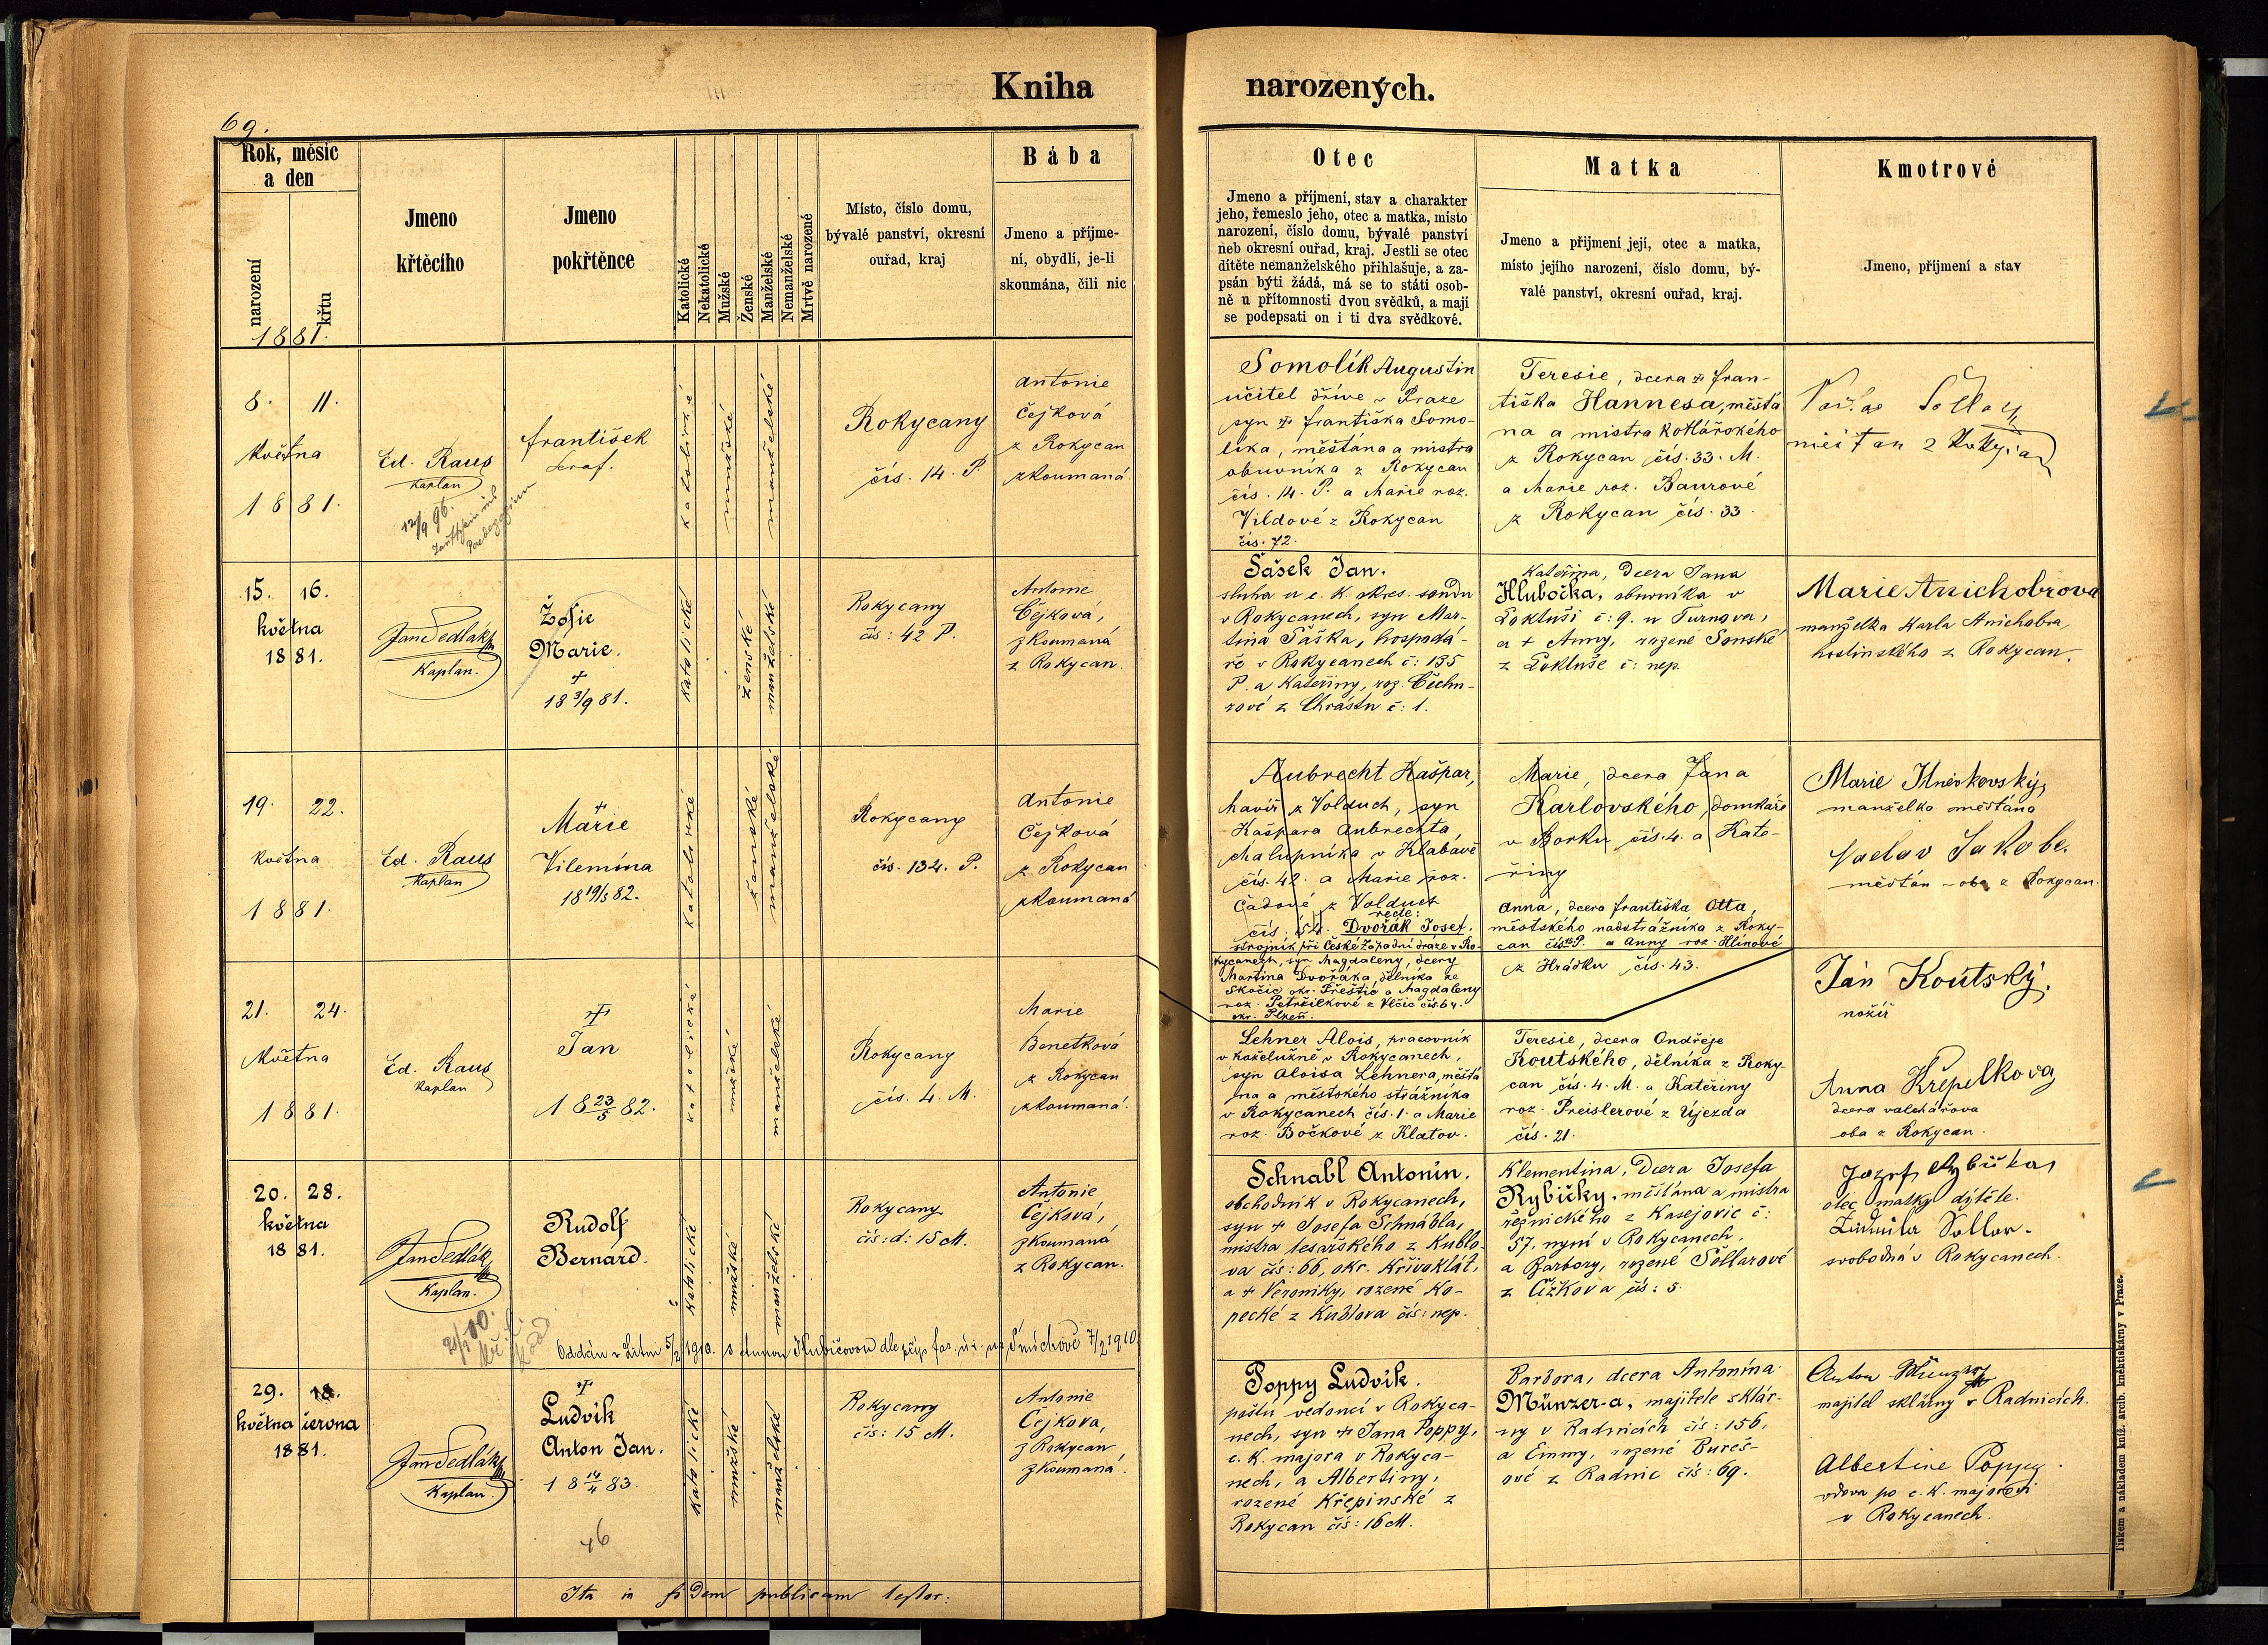 Kniha narozených.
69.
Rok, měsíc
a den
narození
křtu
1881.
Jmeno
křtěcího
Jmeno
pokřtěnce
Katolické
Nekatolické
Mužské
Ženské
Manželské
Nemanželské
Mrtvě narozené
Místo, číslo domu,
bývalé panství, okresní
ouřad, kraj
Bába
Jmeno a příjme-
ní, obydlí, je-li
skoumána, čili nic
Otec
Jmeno a příjmení, stav a charakter
jeho, řemeslo jeho, otec a matka, místo
narození, číslo domu, bývalé panství
neb okresní ouřad, kraj. Jestli se otec
dítěte nemanželského přihlašuje, a za-
psán býti žádá, má se to státi osob-
ně u přítomnosti dvou svědků, a mají
se podepsati on i ti dva svědkové.
Matka
Jmeno a přijmení její, otec a matka,
místo jejího narození, číslo domu, bý-
valé panství, okresní ouřad, kraj.
Kmotrové
Jmeno, příjmení a stav
8. 11.
Května
1881.
Ed. Raus
Kaplan
12/9 96.
František
Seraf.
katolické
mužské
manželské
Rokycany
čís. 14. P.
Antonie
Čejková
z Rokycan
zkoumaná.
Somolík Augustin
učitel dříve v Praze
syn † Františka Somo-
líka, měšťána a mistra
obuvníka z Rokycan
čís. 14. P. a Marie roz.
Vildové z Rokycan
čís. 72.
Teresie, dcera † Fran-
tiška Hannesa, měšťa
na a mistra kotlářského
z Rokycan čís. 33. M.
a Marie roz. Baurové
z Rokycan čís. 33.
měšťan z
15. 16.
května
1881.
Jan Sedlák
Kaplan.
Žofie
Marie.
+
18 3/9 81.
katolické
ženské
manželské
Rokycany
čís: 42 P.
Antonie
Čejková,
zkoumaná
z Rokycan.
Šašek Jan.
sluha u c. k. okres. soudu
v Rokycanech, syn Mar-
tina Šáška, hospodá-
ře v Rokycanech č: 135
P. a Kateřiny, roz. Čechu-
rové z Chrástu č: 1.
Kateřina, dcera Jana
Hlubočka, obuvníka v
Loktuši č: 9. u Turnova,
a + Anny, rozené Sonské
z Loktuše č: nep.
Marie Anichobrova
manželka Karla Anichobra,
hostinského z Rokycan.
19. 22.
Května
1881.
Ed. Raus
Kaplan
+
Marie
Vilemína
18 19/5 82.
katolické
ženské
manželské
Rokycany
čís. 134. P.
Antonie
Čejková
z Rokycan
zkoumaná
Aubrecht Kašpar,
havíř z Volduch, syn
Kašpara Aubrechta,
chalupníka v Klabavě
čís. 42. a Marie roz.
Čadové z Volduch
čís. 54.
recte:
Dvořák Josef,
strojník při České Západní dráze v Ro-
kycanech, syn Magdaleny, dcery
Martina Dvořáka, dělníka ze
Skočic okr. Přeštic a Magdaleny
roz. Petržilkové z Vlčic čís. 64.
okr. Plzeň.
Marie, dcera Jana
Karlovského, domkáře
v Borku čís. 4. a Kate-
řiny
Anna, dcera Františka Otta,
městského nadstrážníka z Roky-
can čís. P. a Anny roz. Hlínové
z Hrádku čís. 43.
Marie
manželka měšťana
Vaclav Jakobe.
měšťan - oba z Rokycan.
21. 24.
Května
1881.
Ed. Raus
Kaplan
†
Jan
18 23/5 82.
katolické
mužské
manželské
Rokycany
čís. 4. M.
Marie
Benetková
z Rokycan
zkoumaná.
Lehner Alois, pracovník
v koželužně v Rokycanech,
syn Aloisa Lehnera, měšťa
na a městského strážníka
v Rokycanech čís. 1. a Marie
roz. Bočkové z Klatov.
Teresie, dcera Ondřeje
Koutského, dělníka z Roky-
can čís. 4. M. a Kateřiny
roz. Preislerové z Újezda
čís. 21.
Ján Koutský.
nožíř
Anna Křepelkova
dcera valchářova
oba z Rokycan.
20. 28.
května
1881.
Jan Sedlák
Kaplan.
Rudolf
Bernard.
katolické
mužské
manželské
Rokycany
čís: d: 15 M.
Antonie
Čejková,
zkoumaná
z Rokycan.
Oddán v Litni 5/2 1910. s Annou Kubičovou dle příp. far. úř. na Smíchově 7/2 1910
Schnabl Antonín.
obchodník v Rokycanech,
syn + Josefa Schnábla,
mistra tesařského z Kublo-
va čís: 66, okr. Křivoklát,
a + Veroniky, rozené Ko-
pecké z Kublova čís: nep.
Klementina, dcera Josefa
Rybičky, měšťana a mistra
řeznického z Kasejovic č:
57, nyní v Rokycanech,
a Barbory, rozené Šollarové
z Čížkova čís: 5.
Jozef Rybička,
otec matky dítěte.
Ludmila Sollar-
svobodná v Rokycanech.
29. 18.
května června
1881.
Jan Sedlák
Kaplan.
†
Ludvík
Anton Jan.
18 14/4 83.
46
katolické
mužské
manželské
Rokycany
čís: 15 M.
Antonie
Čejkova,
z Rokycan
zkoumaná.
Poppy Ludvík.
poštu vedoucí v Rokyca-
nech, syn + Jana Poppy,
c. k. majora v Rokyca-
nech, a Albertiny,
rozené Křepinské z
Rokycan čís: 16 M.
Barbora, dcera Antonína
Münzer-a, majitele sklár-
ny v Radnicích čís: 156,
a Emmy, rozené Bureš-
ové z Radnic čís: 69.
Anton Münzer
majitel sklárny v Radnicích.
Albertine Poppy.
vdova po c. k. majorovi
v Rokycanech.
Ita in fidem publicam testor:
Tiskem a nákladem kníž. arcib. knihtiskárny v Praze.